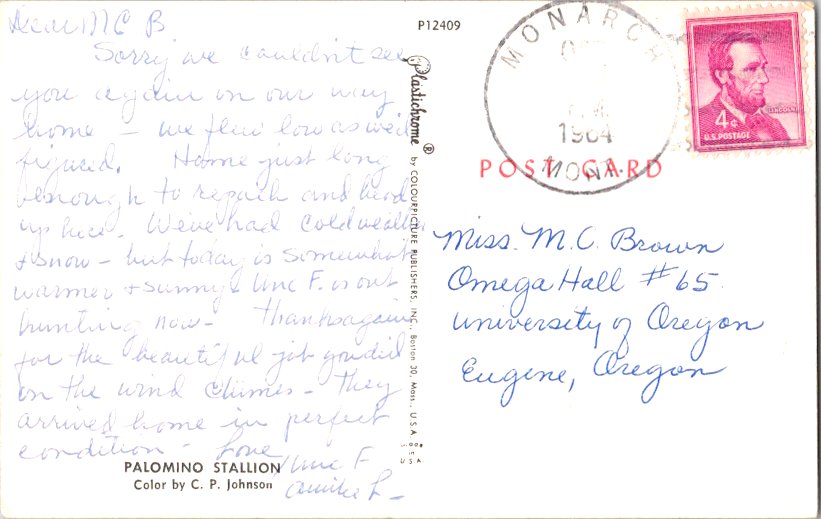 Dear M C B
Sorry we couldn't see
you again on our way
home - we flew low as we'd
figured. Home just long
enough to repack and head
up here. We've had cold weather
+ snow - but today is somewhat
warmer + sunny & Unc F. is out
hunting now - Thanks again
for the beautiful job you did
on the wind chimes - They
arrived home in perfect
condition - Love
Unc F
PALOMINO STALLION
Color by C. P. Johnson
P12409
Plastichrome ® by COLOURPICTURE PUBLISHERS, INC., Boston 30, Mass., U.S.A.
MONARCH
1964
MONT.
LINCOLN
4¢
U.S. POSTAGE
POST CARD
Miss. M. C. Brown
Omega Hall #65.
University of Oregon
Eugene, Oregon